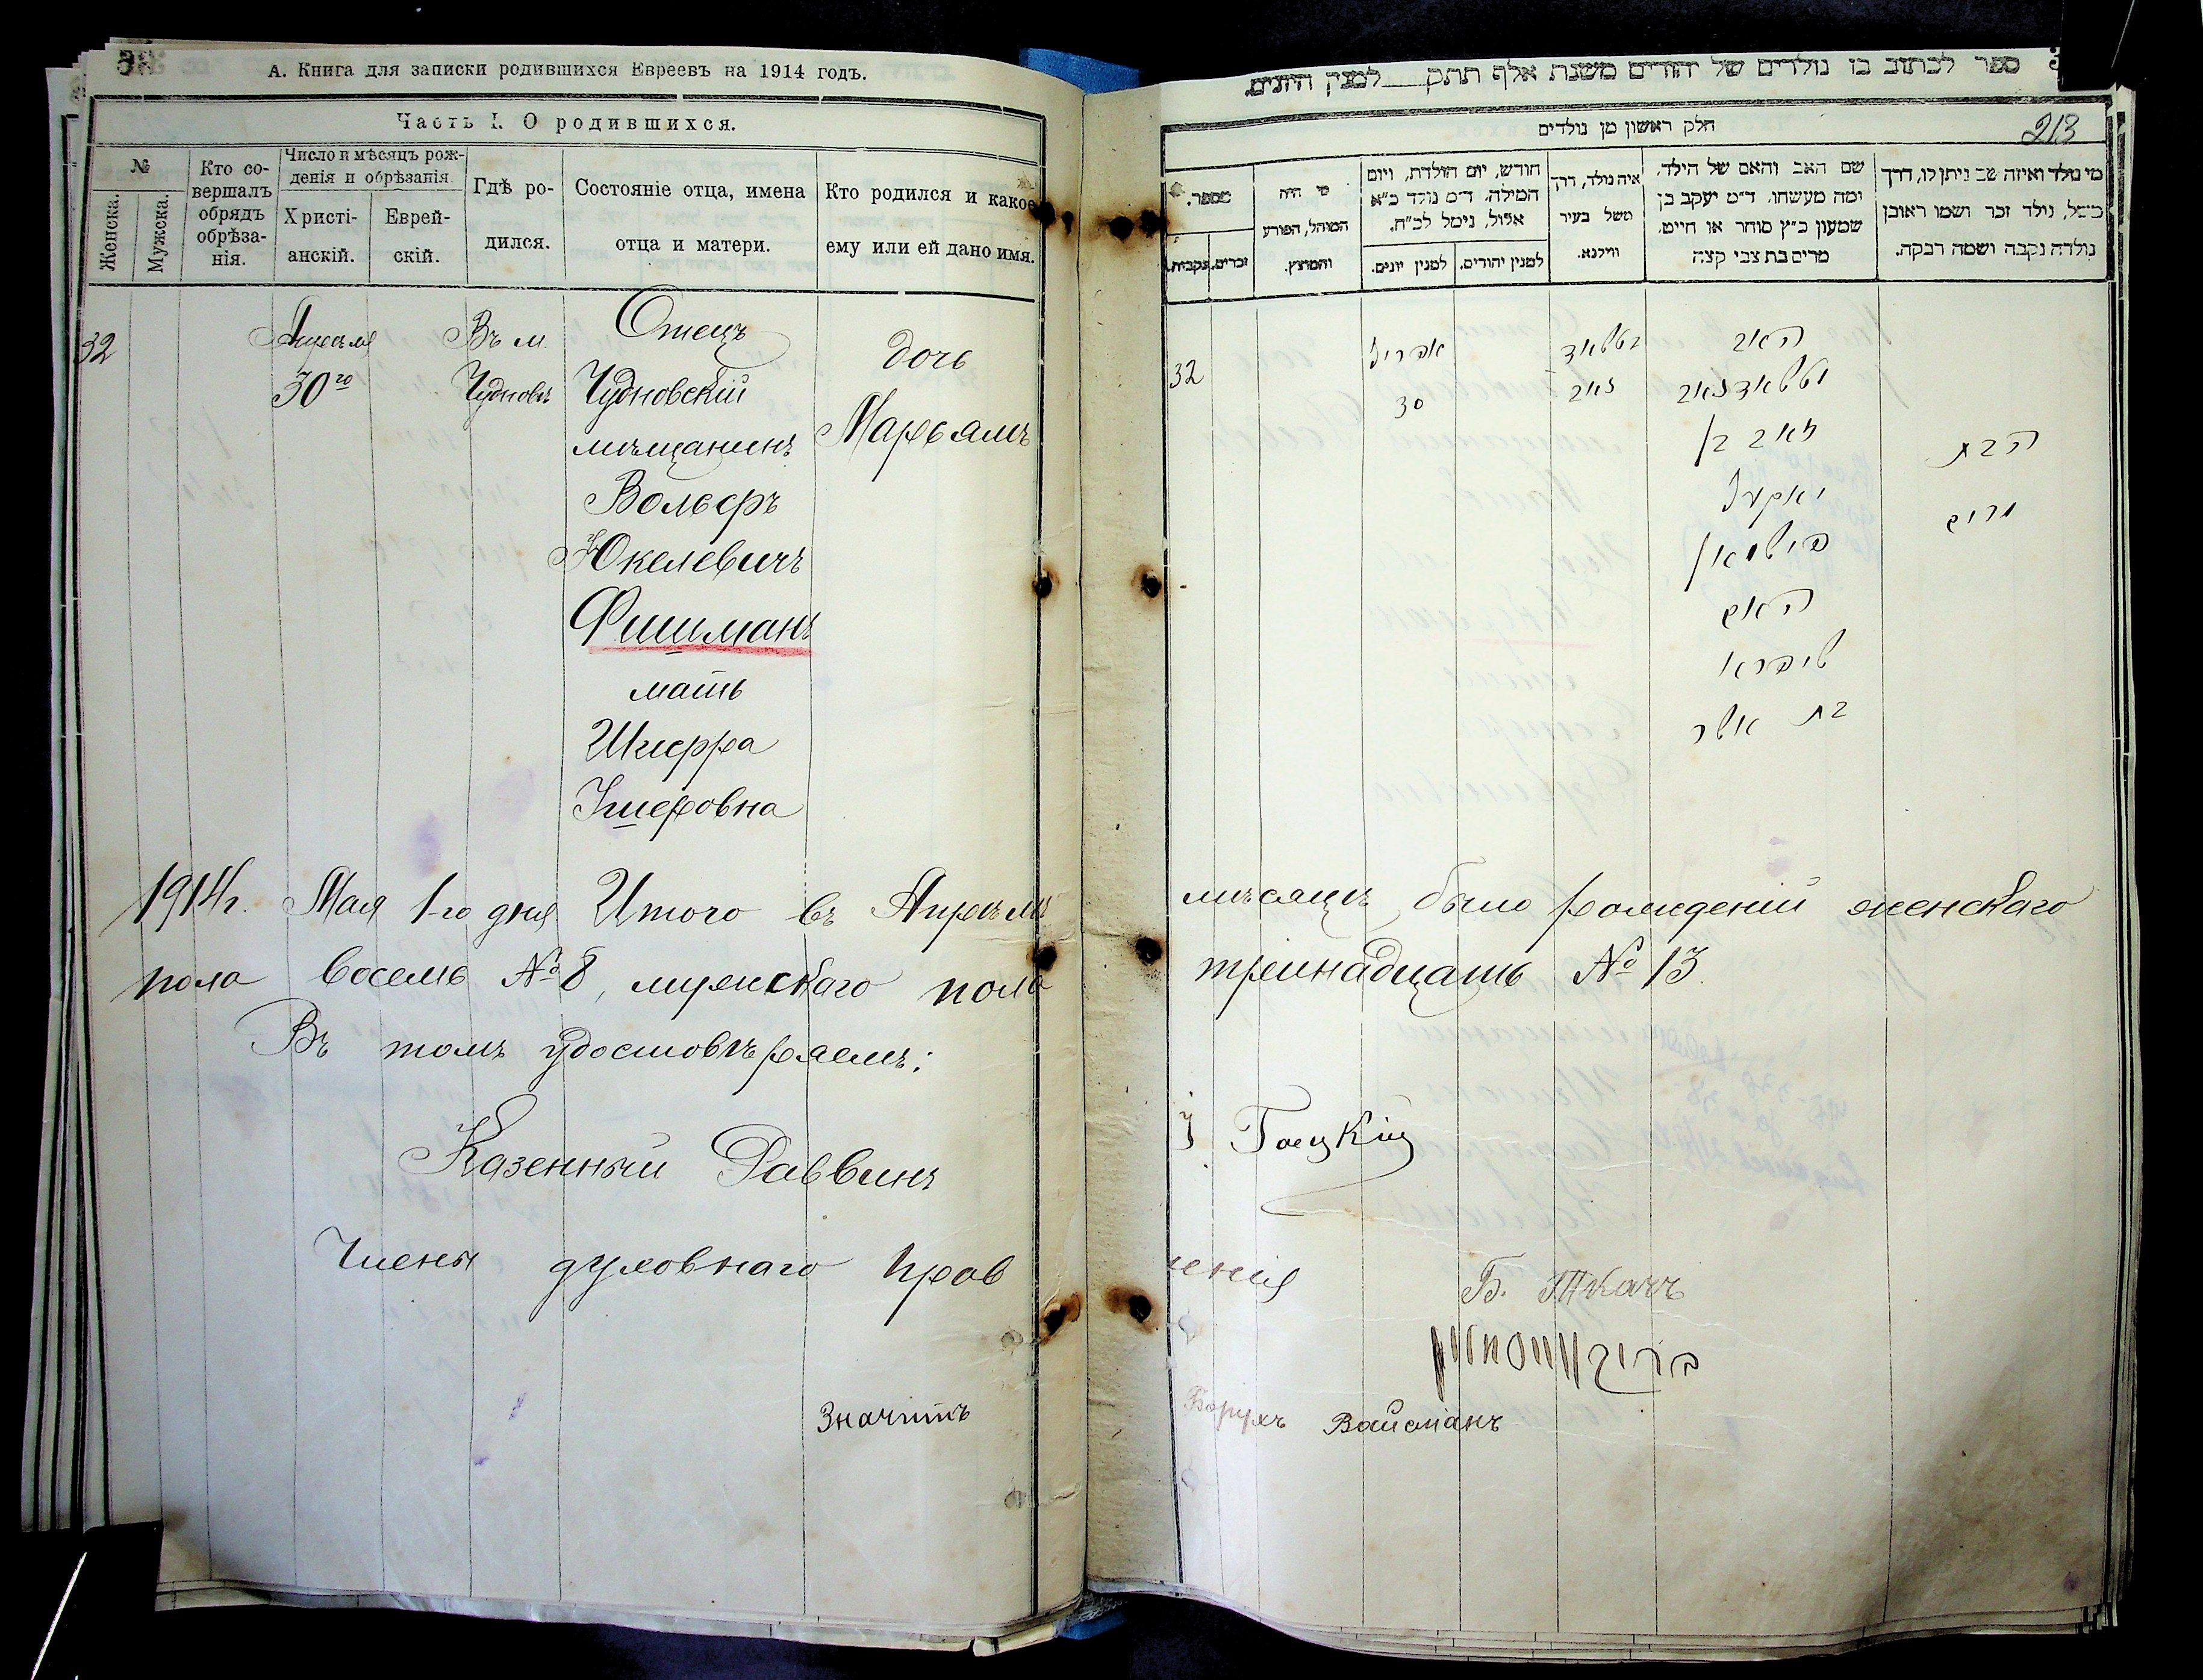 А. Книга для записки родившихся Евреевъ на 1914 годъ.
Часть I. О родившихся.
№
Женска.
Мужска.
Кто со-
вершалъ
обрядъ
обрѣза-
нія.
Число и мѣсяцъ рож-
денія и обрѣзанія
Христі-
анскій.
Еврей-
скій.
Гдѣ ро-
дился.
Состояніе отца, имена
отца и матери.
Кто родился и какое
ему или ей дано имя.
32
Апрѣля
30го
Въ м.
Чудновъ
Отецъ
Чудновскій
мѣщанинъ
Вольфъ
Юкелевичъ
Фишманъ
мать
Шифра
Ушеровна
дочь
Марьямъ
ספר לכתוב בו נולדים של יהודים משנת אלף תתק למנין היונים.
213
חלק ראשון מן נולדים
מספר.
נקבות.
זכרים.
מי היה
המוהל, הפורע
והמוצץ.
חודש, יום הולדת, ויום
המילה. ד״מ נולד כ״א
אלול, נימל לכ״ח.
למנין יונים.
למנין יהודים.
איה נולד, דרך
משל בעיר
ווילנא.
שם האב והאם של הילד,
ומה מעשהו. ד״מ יעקב בן
שמעון כ״ץ סוחר או חייט,
מרים בת צבי קצה
מי נולד ואיזה שם ניתן לו, דרך
משל, נולד זכר ושמו ראובן
נולדה נקבה ושמה רבקה.
32
אפריל
30
האב
זאב בן
יאקעל
פישמאן
האם
שיפרא
בת אשר
הבת
מרים
1914 г. Мая 1-го дня Итого въ Апрѣлѣ мѣсяцѣ было рожденій женскаго
пола восемь № 8, мужскаго пола тринадцать № 13.
Въ томъ удостовѣряемъ:
Казенный Раввинъ
Члены духовнаго Правленія
Б. Ткачъ
Значитъ Барухъ Вайсманъ